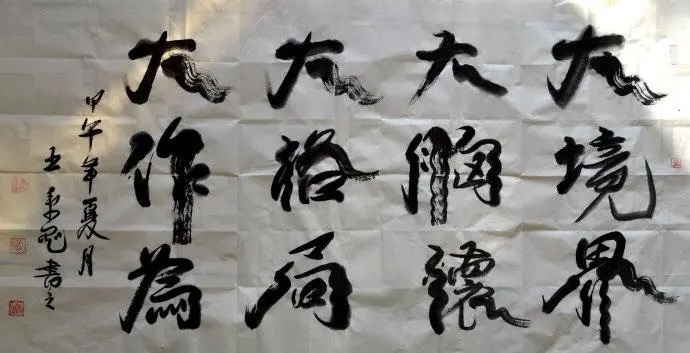 大境界
大胸襟
大格局
大作為
甲午年夏月
王
書之